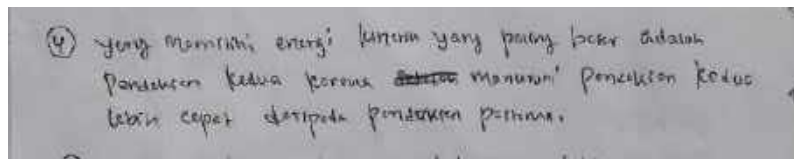 ④ yang memiliki energi kinetik yang paling besar adalah
Pendakian kedua karena menuruni Pendakian kedua
lebih cepat daripada pendakian pertama.